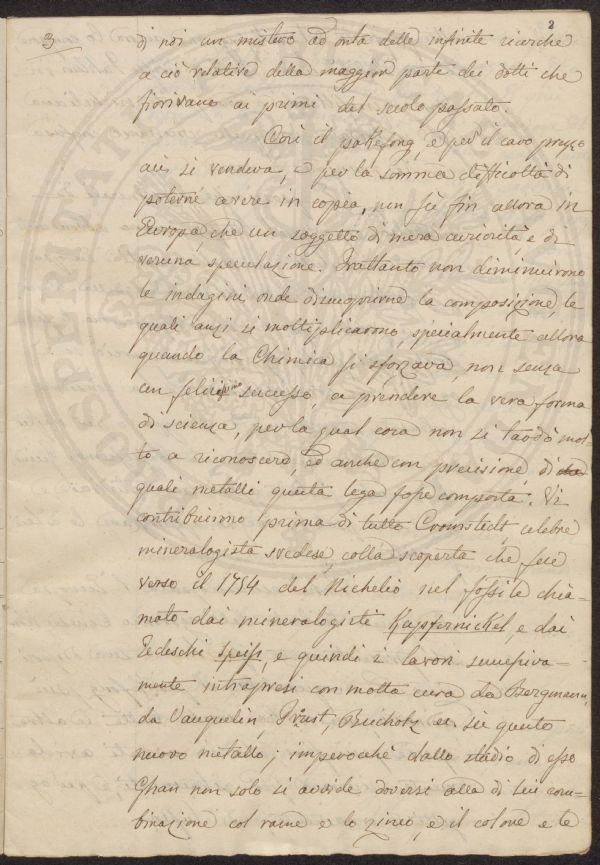 3
2
di noi un mistero ad onta delle infinite ricerche
a ciò relative della maggior parte dei dotti che
fiorivano ai primi del secolo passato.
Così il pakfong, e per il caro prezzo
a cui si vendeva, e per la somma difficoltà di
poterne avere in copia, non fu fin allora in
Europa, che un soggetto di mera curiosità, e di
veruna speculazione. Frattanto non diminuirono
le indagini onde discuoprirne la composizione, le
quali anzi si moltiplicarono, specialmente allora
quando la Chimica si sforzava, non senza
un felicissimo successo, a prendere la vera forma
di scienza, per la qual cosa non si tardò mol-
to a riconoscere, ed anche con precisione, di
quali metalli questa lega fosse composta. Vi
contribuirono prima di tutto Cronstedt, celebre
mineralogista svedese, colla scoperta che fece
verso il 1754 del Nichelio nel fossile chia-
mato dai mineralogisti Kupfernickel, e dai
Tedeschi Speiss, e quindi i lavori successiva-
mente intrapresi con molta cura da Bergmann,
da Vauquelin, Prust, Bucholz ec. su questo
nuovo metallo; imperocchè dallo studio di esso
Ghan non solo si avvide doversi alla di lui com-
binazione col rame e lo zinco, e il colore e le